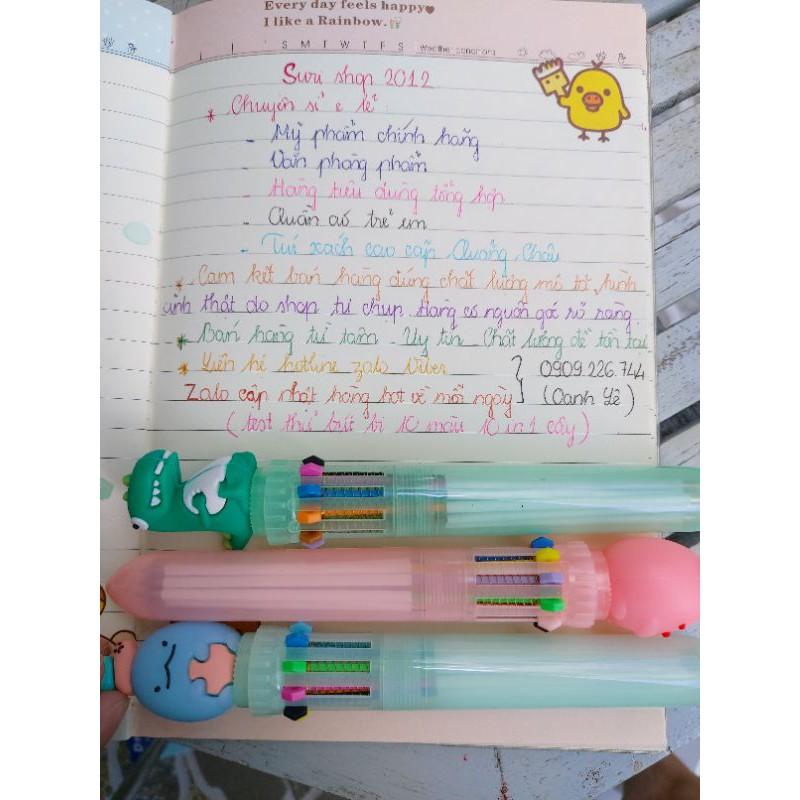 Every day feels happy
I like a Rainbow.
S M T W T F S
Sưu shop 2012
* Chuyên sỉ & lẻ
- Mỹ phẩm chính hãng
- Văn phòng phẩm
- Hàng tiêu dùng tổng hợp
- Quần áo trẻ em
- Túi xách cao cấp Quảng Châu
* Cam kết bán hàng đúng chất lượng mô tả, hình
ảnh thật do shop tự chụp. Hàng có nguồn gốc rõ ràng.
* Bán hàng từ tâm Uy tín Chất lượng để tồn tại
* Liên hệ hotline zalo Viber } 0909.226.744
Zalo cập nhật hàng hot về mỗi ngày (Oanh Lê)
(test thử bút bi 10 màu 10 in 1 cây)